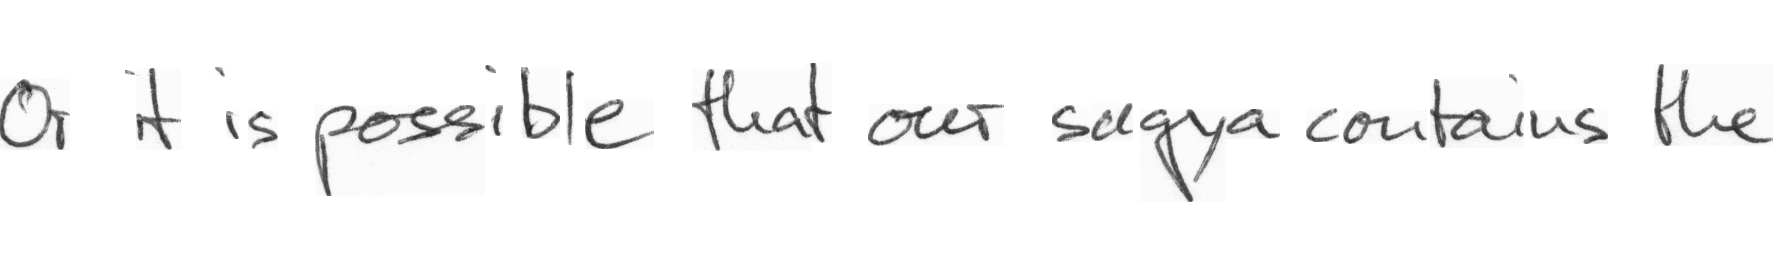 Or it is possible that our sugya contains the